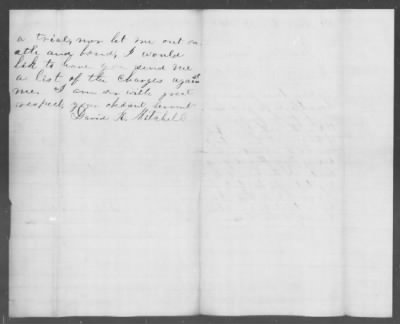 a trial, nor let me out on
oath and bond, I would
lik to have you send me
a list of the charges against
me. I am sir with great
respect your obdant servant
David H. Mitchell